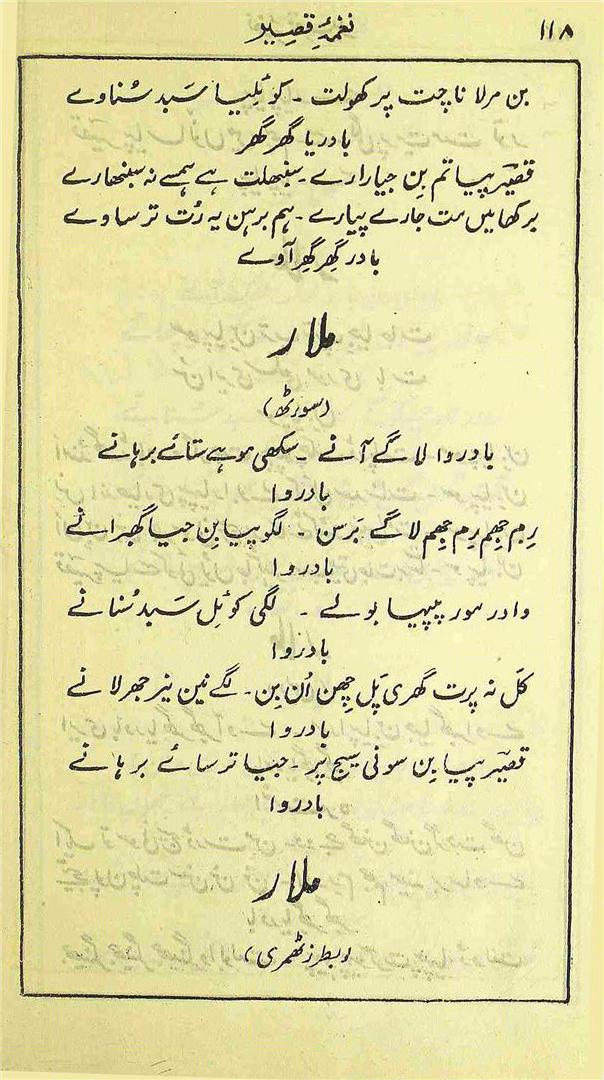 ۱۱۸
نغمۂ قصیر
بن مرلا ناچت پر کھولت ۔ کوئلیا سَبد سُناوے
بادر یا گھر گھر
قصیر پیا تم بِن جیارارے ۔ سنبھلت ہے ہمسے نہ سنبھارے
برکھا میں مت جارے پیارے ۔ ہم برہن یہ رُت ترساوے
بادر گھِر گھِر آوے
ملار
(سورٹھ)
بادروا لاگے آنے ۔ سکھی موہے ستائے برہانے
بادروا
رِم جھِم رِم جھِم لاگے بَرسن ۔ لگو پیا بِن جیا گھبرانے
بادروا
دادر مور پپیہا بولے ۔ لگی کوئل سَبد سُنانے
بادروا
کَل نہ پرت گھری پَل چھِن اُن بِن ۔ لگے نین نیر جھرلانے
بادروا
قصیر پیا بِن سونی سیج پر ۔ جیا ترسائے برہانے
بادروا
ملار
(بطرز ٹھمری)